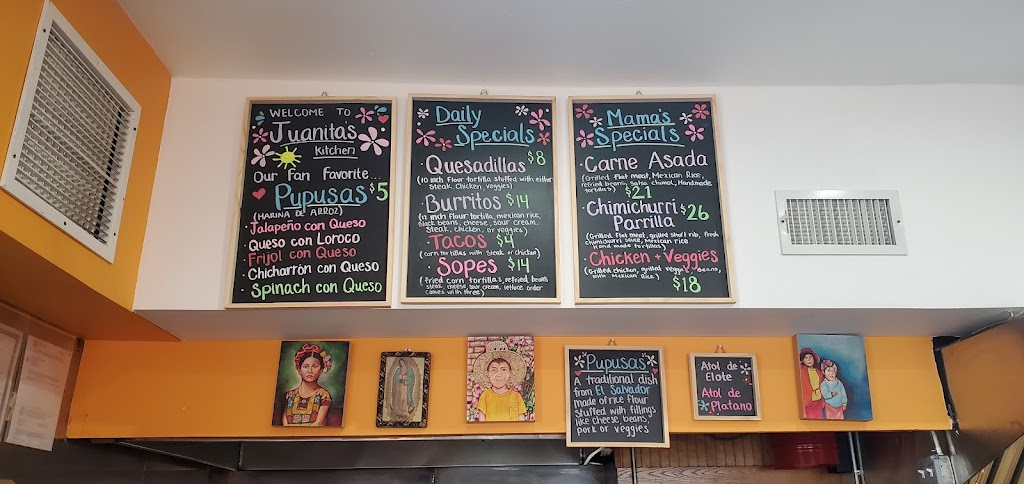 WELCOME TO
Juanita's
Kitchen
Our Fan Favorite...
Pupusas $5
(HARINA DE ARROZ)
·Jalapeño con Queso
·Queso con Loroco
·Frijol con Queso
·Chicharrón con Queso
·Spinach con Queso
Daily
Specials
·Quesadillas $8
(10 inch flour tortilla stuffed with either
steak, chicken, veggies)
·Burritos $14
(12 inch flour tortilla, mexican rice,
black beans, cheese, sour cream,
steak, chicken, or veggies)
·Tacos $4
(corn tortillas with steak or chicken)
·Sopes $14
(fried corn tortillas, refried beans
steak, cheese, sour cream, lettuce order
comes with three)
Mama's
Specials
·Carne Asada
(Grilled flat meat, Mexican Rice,
refried beans, salsa chimol, Handmade
tortillas) $21
·Chimichurri $26
Parrilla
(Grilled flat meat, grilled short rib, fresh
chimichurri sauce, Mexican rice
hand made tortillas)
·Chicken + Veggies
(Grilled chicken, grilled veggies, beans,
with Mexican Rice)
$18
Pupusas
A traditional dish
from El Salvador
made of rice flour
stuffed with fillings
like cheese, beans,
pork or veggies
Atol de
Elote
Atol de
Platano